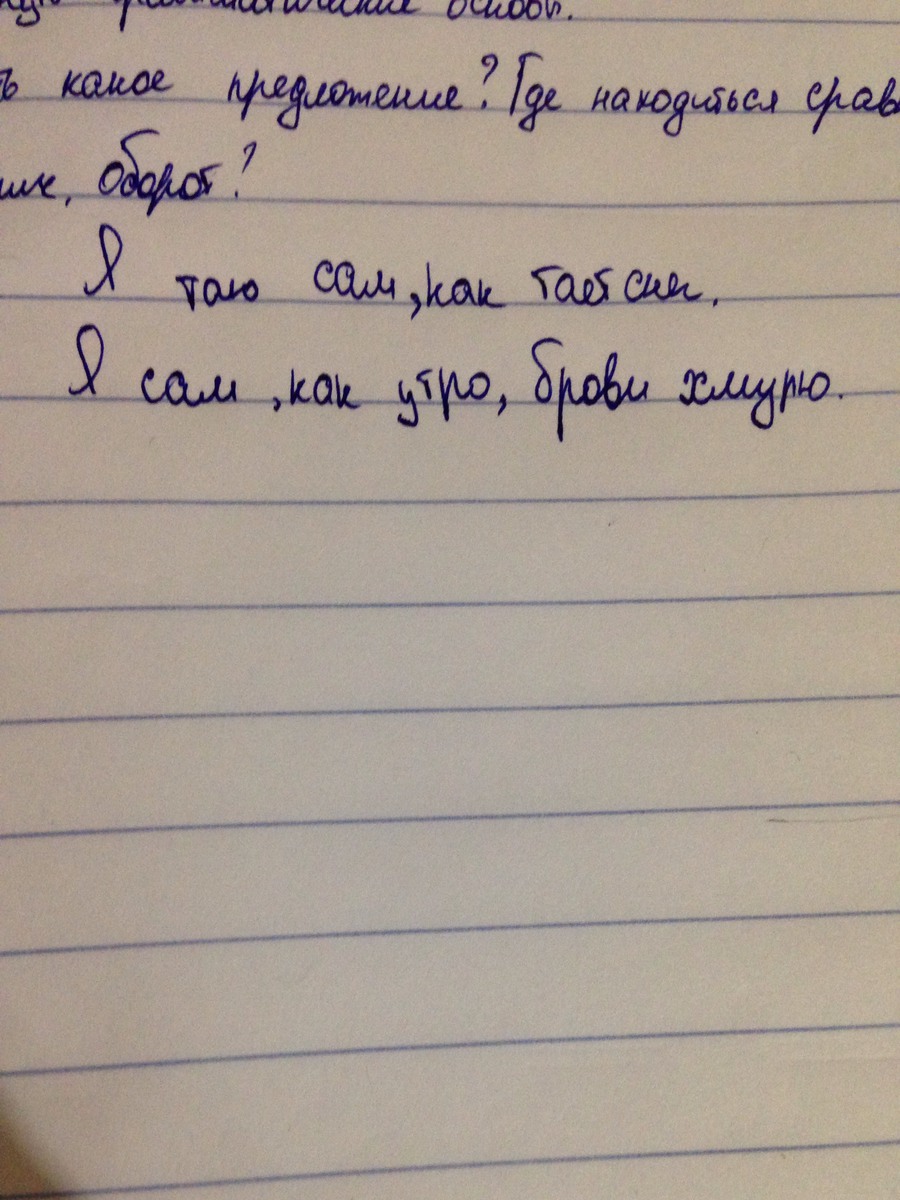 основы.
какое предложение? Где находиться срав
оборот?
Я таю сам, как тает снег.
Я сам, как утро, брови хмурю.